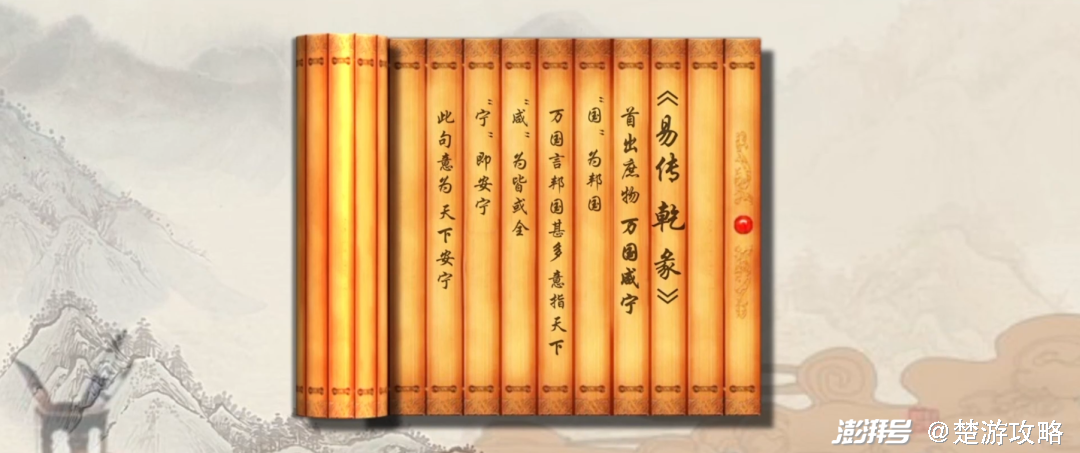 《易传 乾 彖》
首出庶物 万国咸宁
"国"为邦国
万国言邦国甚多 意指天下
"咸"为皆或全
"宁"即安宁
此句意为天下安宁
澎湃号 @楚游攻略